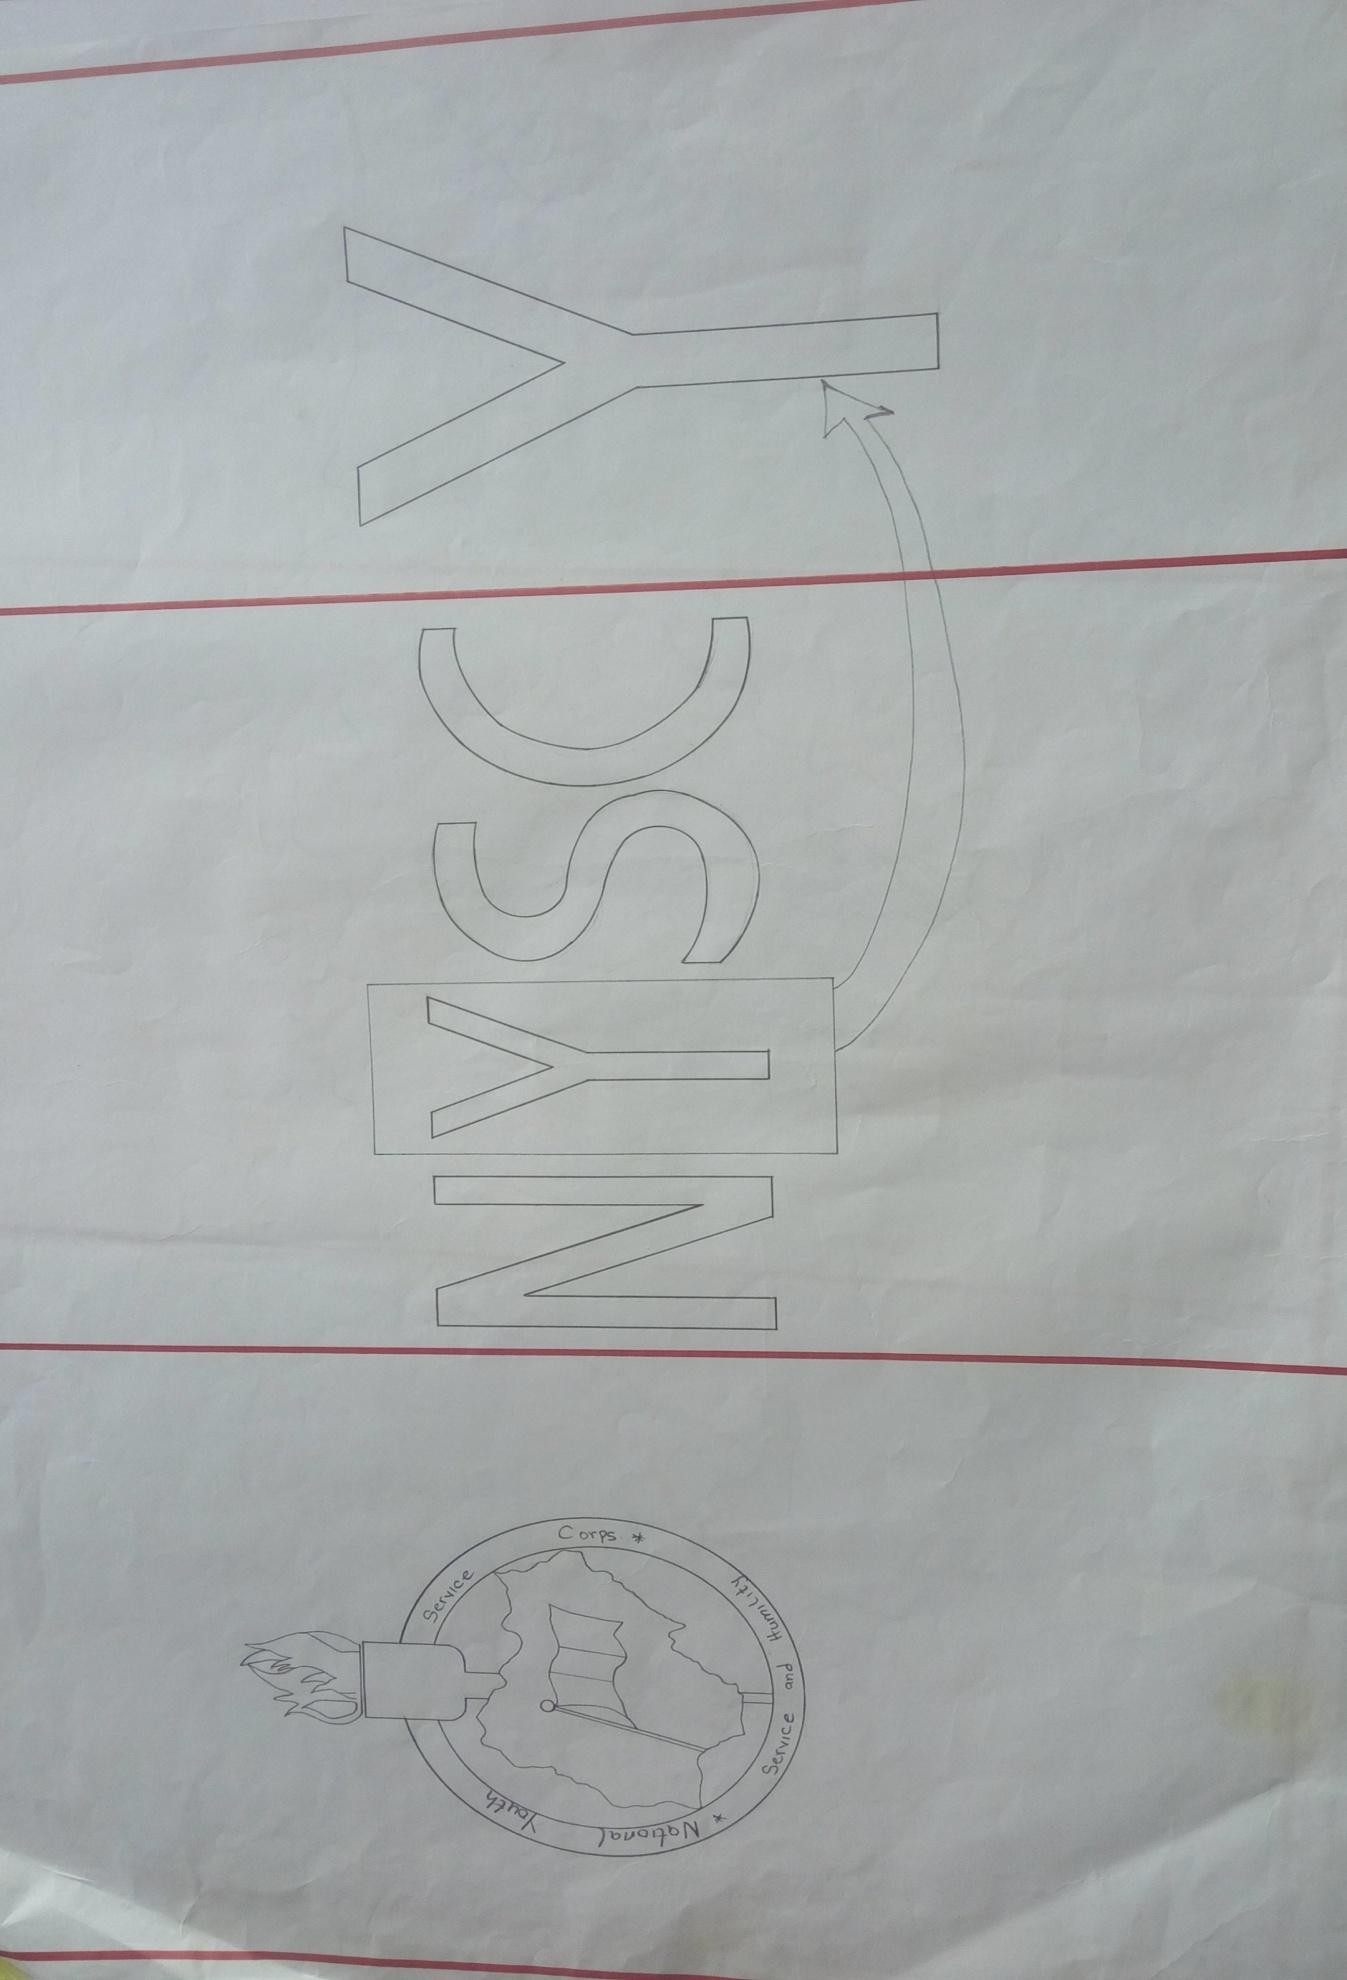 National Youth Service Corps *
Service and Humility *
NYSC
Y